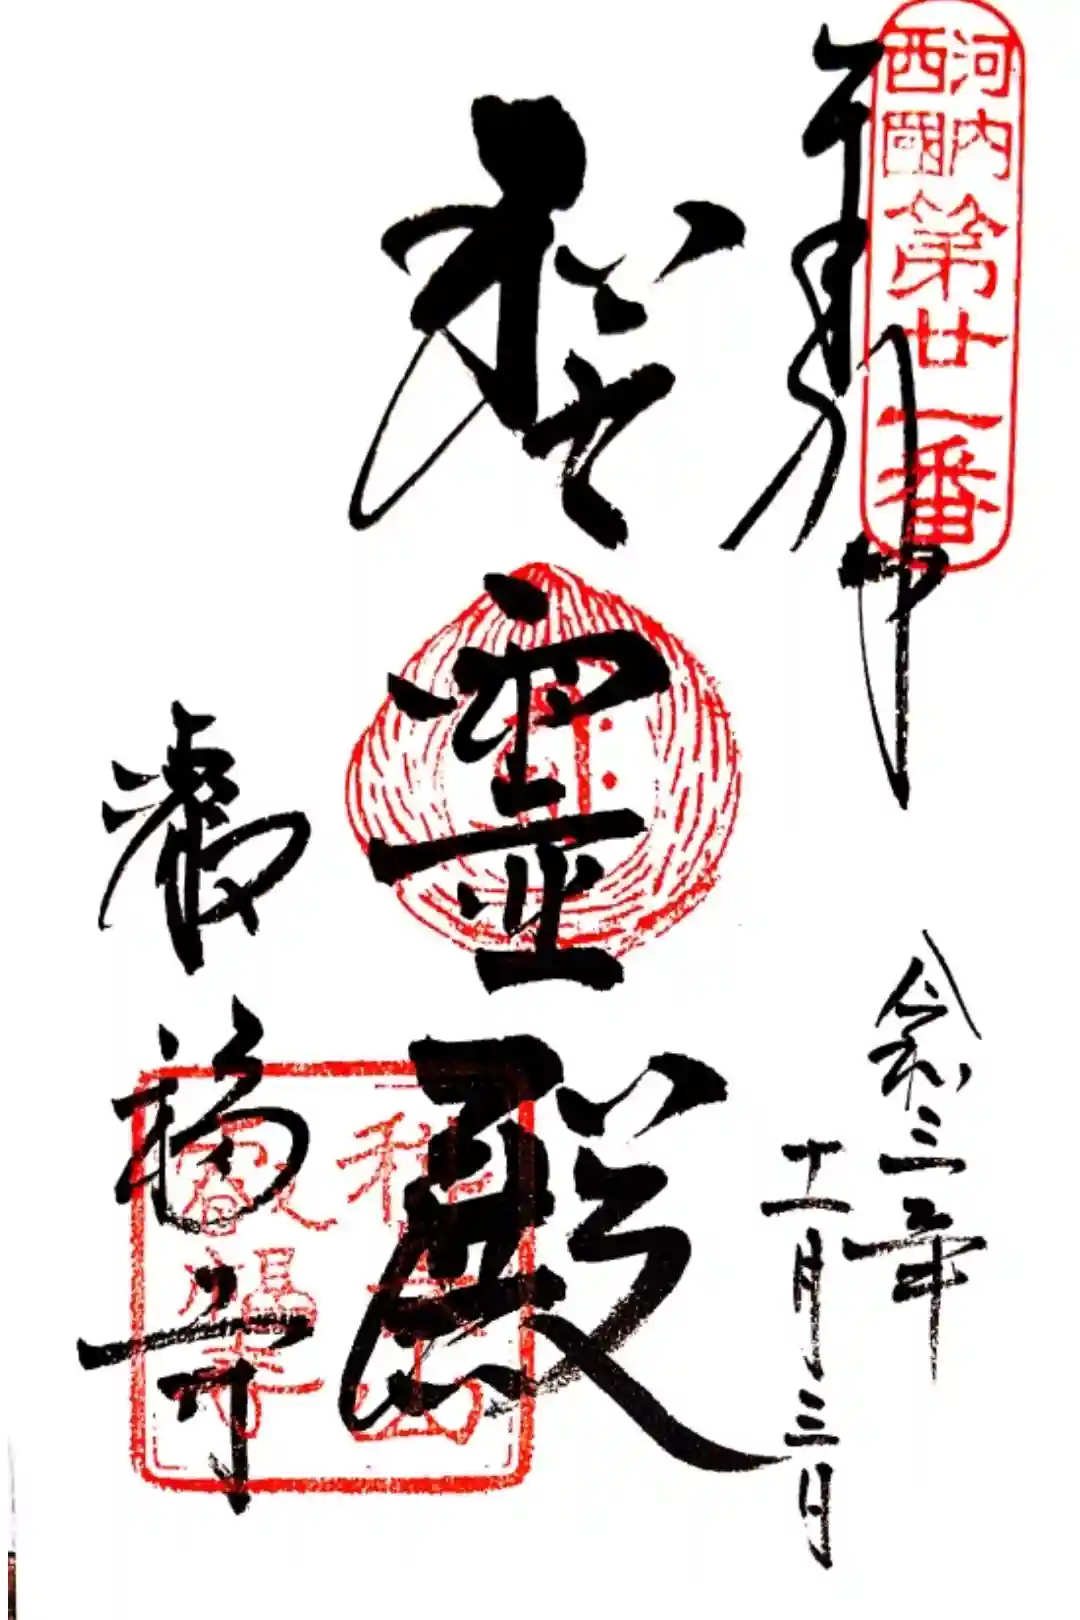 河内
西國
第廿一番
奉拝
令和三年
十一月三日
聖霊殿
叡福寺
叡福寺